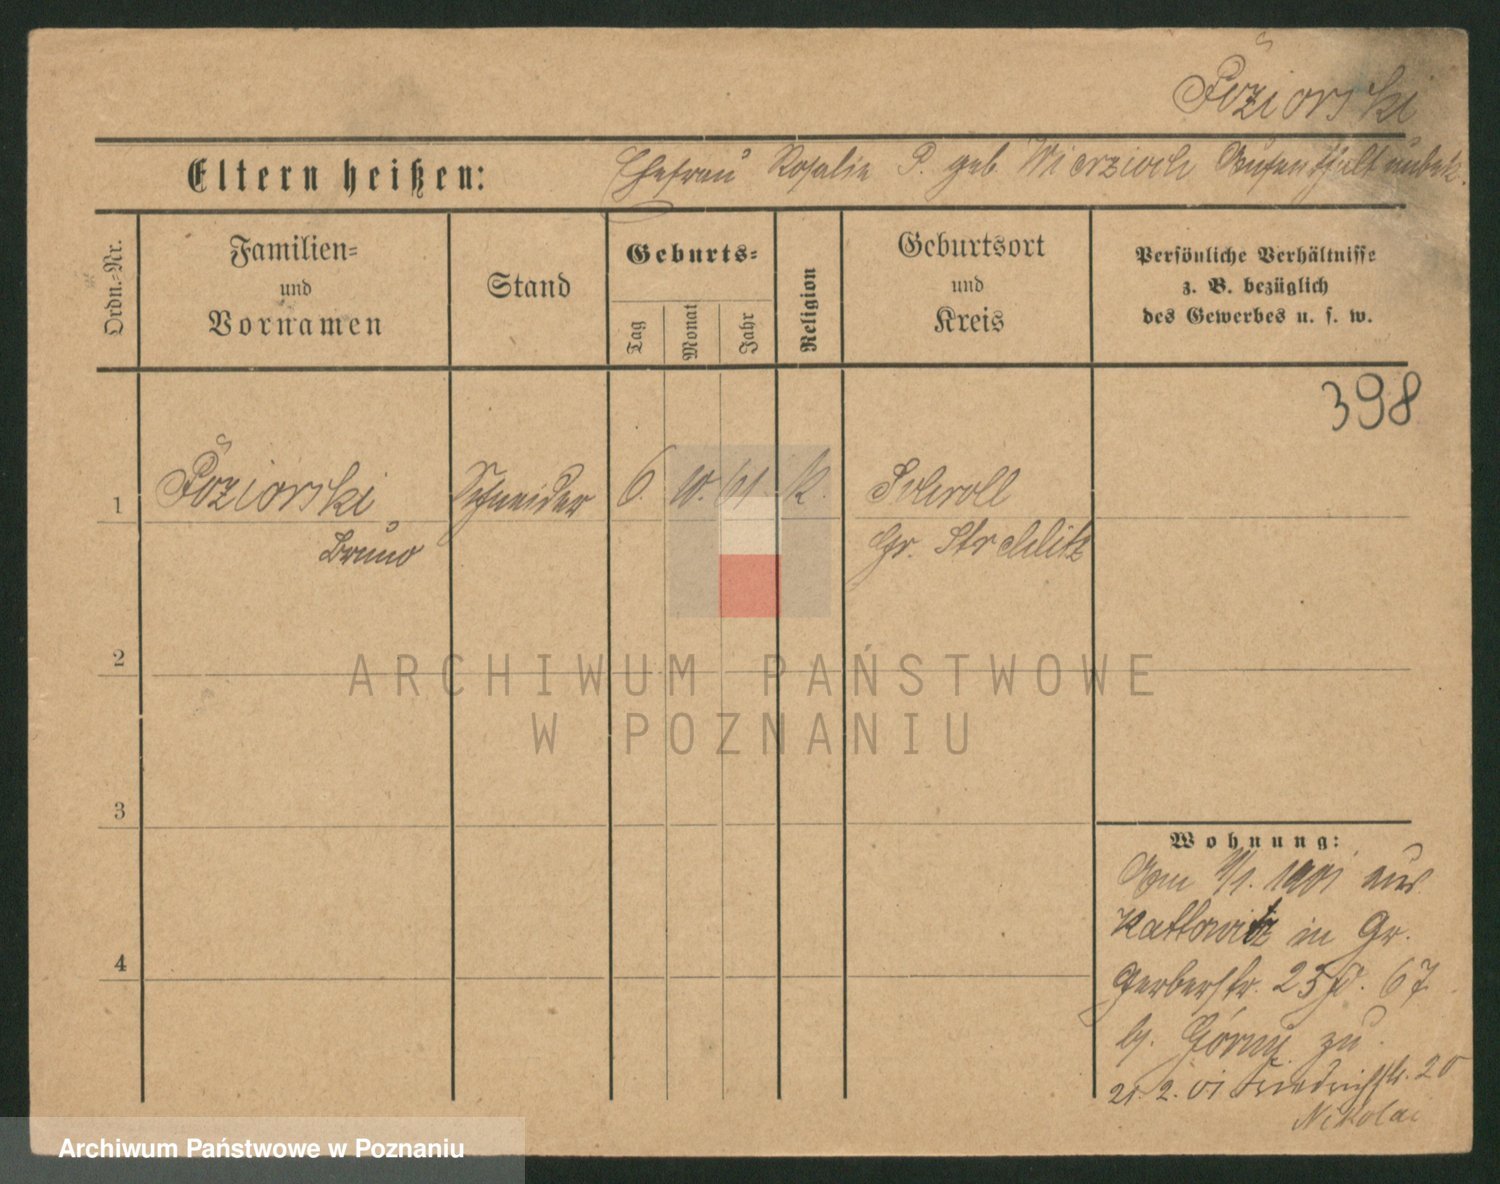 Poziorski
Eltern heißen: Ehefrau Rosalie P. geb Wierzioch Aufenthalt unbek.
Ordn.-Nr.
Familien-
und
Vornamen
Stand
Geburts-
Tag
Monat
Jahr
Religion
Geburtsort
und
Kreis
Persönliche Verhältnisse
z. B. bezüglich
des Gewerbes u. s. w.
398
1 Poziorski Schneider 6. 10. 61. K.
Bruno Gr. Strehlitz
2
3
4
Wohnung:
Am 1901 aus
Kattowitz in Gr.
Gerberstr. 25
bj. Górny zu
21. 2. 01 Friedrichstr. 20
Nikolai
ARCHIWUM PAŃSTWOWE
W POZNANIU
Archiwum Państwowe w Poznaniu